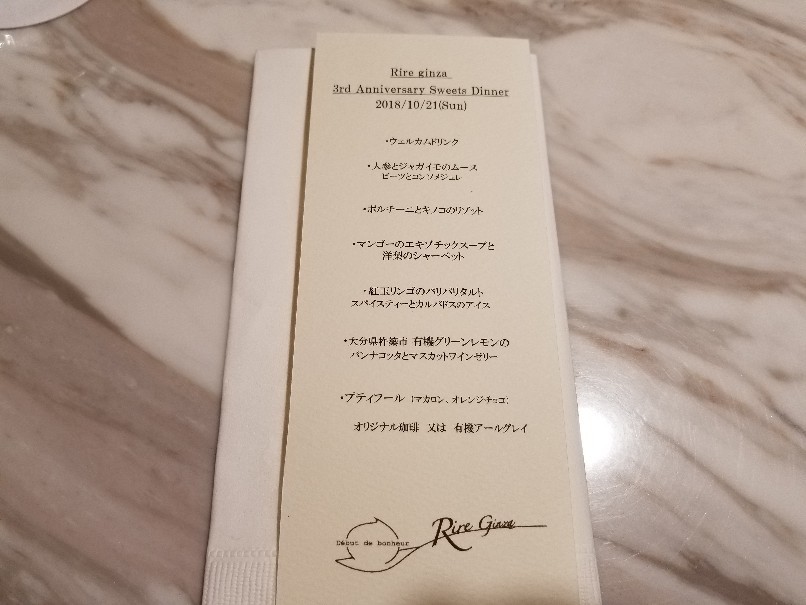 Rire ginza
3rd Anniversary Sweets Dinner
2018/10/21(Sun)
・ウェルカムドリンク
・人参とジャガイモのムース
ビーツとコンソメジュレ
・ポルチーニとキノコのリゾット
・マンゴーのエキゾチックスープと
洋梨のシャーベット
・紅玉リンゴのパリパリタルト
スパイスティーとカルバドスのアイス
・大分県杵築市 有機グリーンレモンの
パンナコッタとマスカットワインゼリー
・プティフール (マカロン、オレンジチョコ)
オリジナル珈琲 又は 有機アールグレイ
Début de bonheur
Rire Ginza